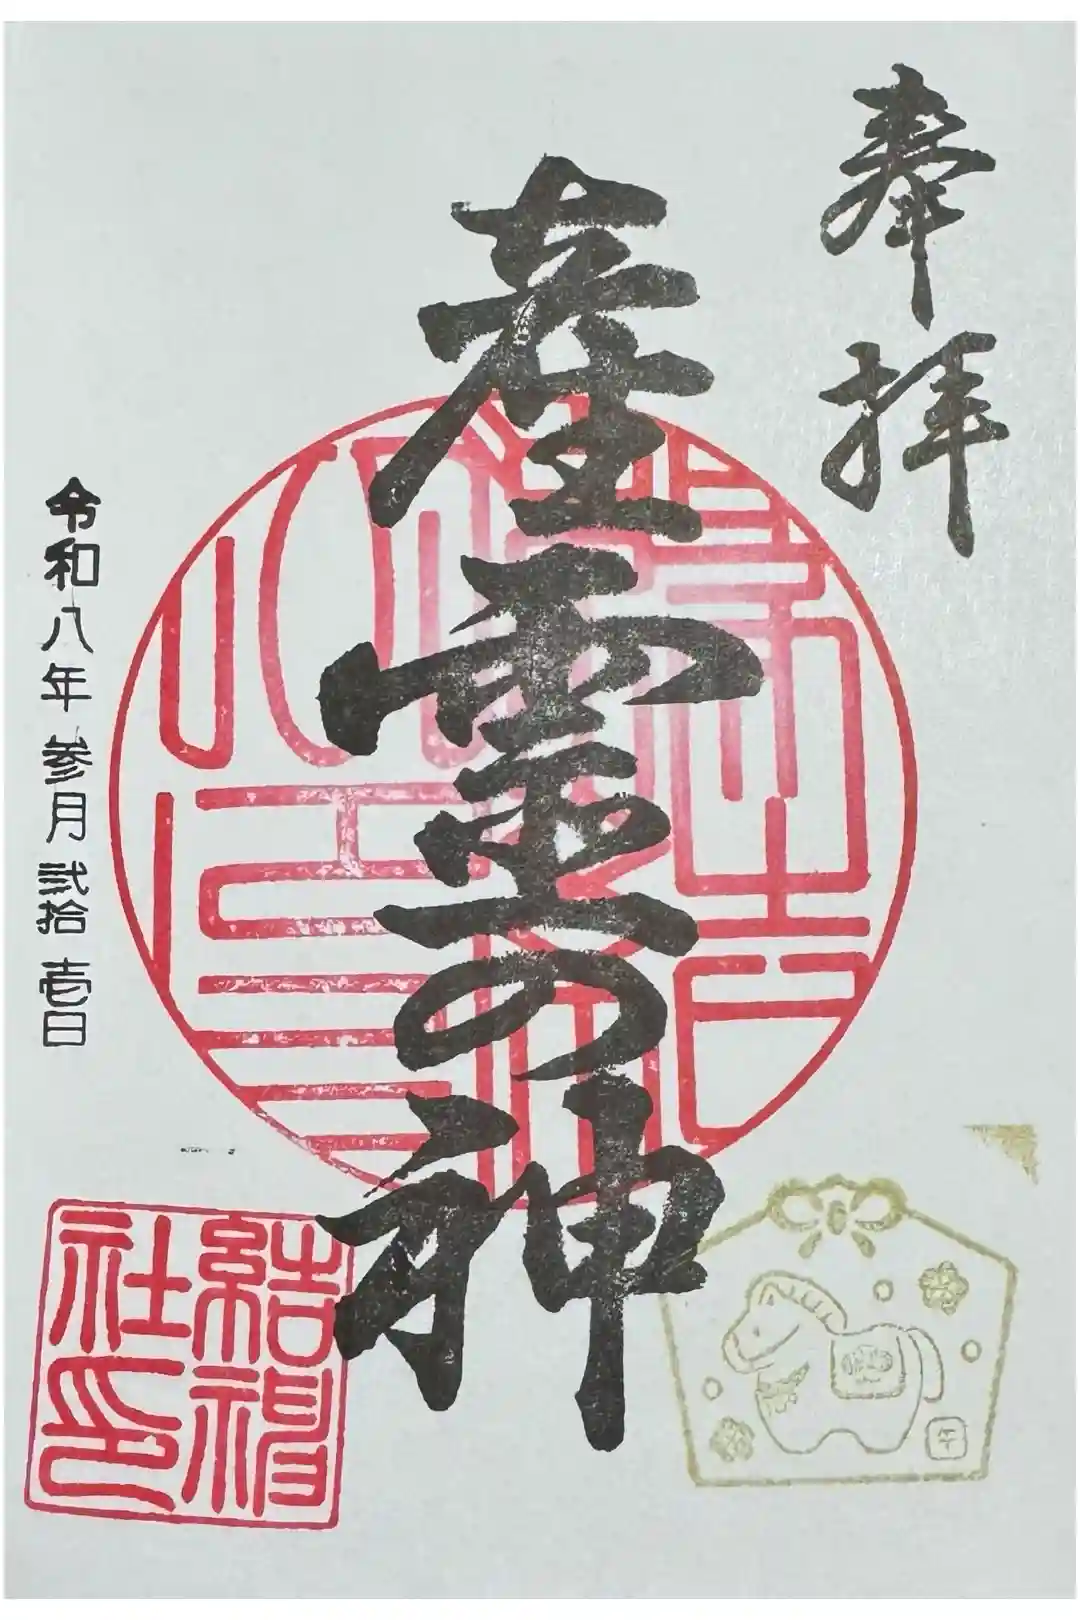 奉拝
産霊の神
令和八年参月弐拾壱日
結神
社印
午